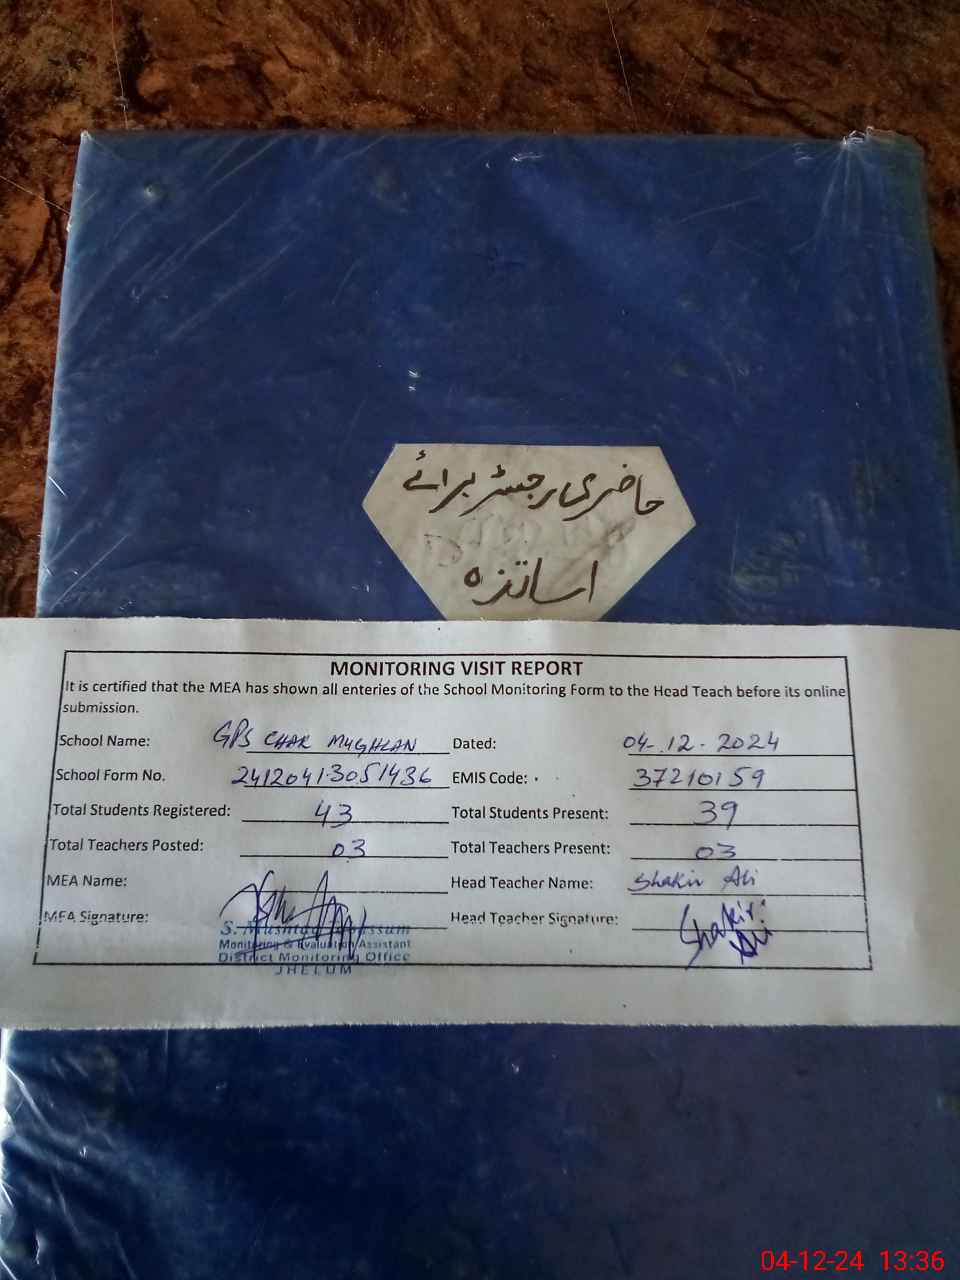 حاضری رجسٹر برائے
اساتذہ
MONITORING VISIT REPORT
It is certified that the MEA has shown all enteries of the School Monitoring Form to the Head Teach before its online
submission.
School Name: GPS CHAR MUGHLAN Dated: 04-12-2024
School Form No. 24120413051436 EMIS Code: 37210159
Total Students Registered: 43 Total Students Present: 39
Total Teachers Posted: 03 Total Teachers Present: 03
MEA Name: Head Teacher Name: Shakir Ali
MEA Signature: Head Teacher Signature: Shakir Ali
S. Mushtaq
Monitoring & Evaluation Assistant
District Monitoring Office
JHELUM
04-12-24 13:36